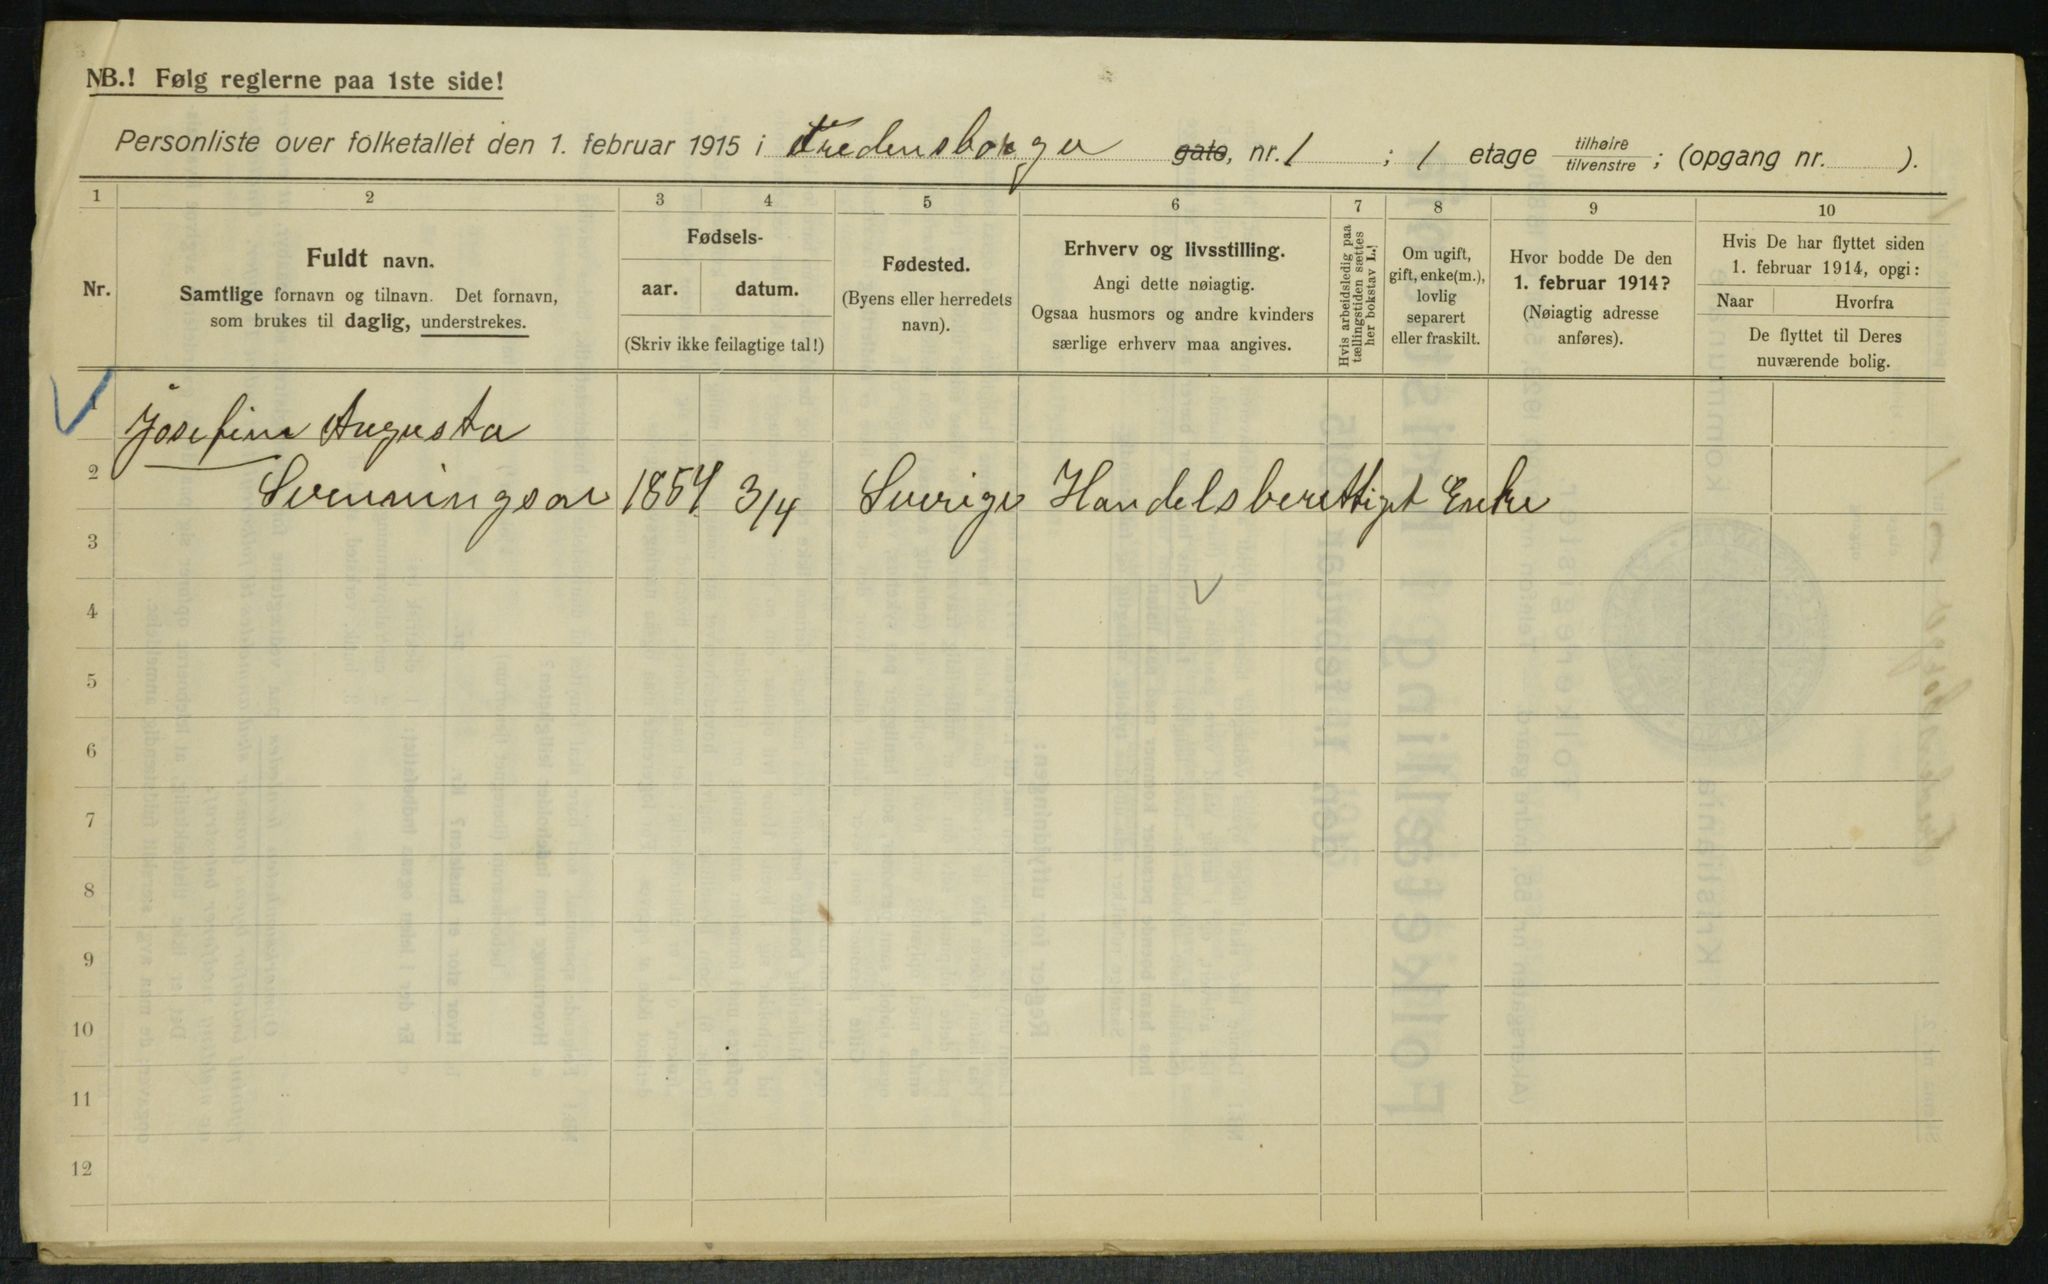 NB.! Følg reglerne paa 1ste side!
Personliste over folketallet den 1. februar 1915 i Fredensborgv gate, nr. 1 ; 1 etage tilhøire tilvenstre ; (opgang nr. ).
1 2 3 4 5 6 7 8 9 10
Nr.
Fuldt navn.
Samtlige fornavn og tilnavn. Det fornavn,
som brukes til daglig, understrekes.
Fødsels-
aar. datum.
(Skriv ikke feilagtige tal!)
Fødested.
(Byens eller herredets
navn).
Erhverv og livsstilling.
Angi dette nøiagtig.
Ogsaa husmors og andre kvinders
særlige erhverv maa angives.
Hvis arbeidsledig paa
tællingstiden sættes
her bokstav L.!
Om ugift,
gift, enke(m.),
lovlig
separert
eller fraskilt.
Hvor bodde De den
1. februar 1914?
(Nøiagtig adresse
anføres).
Hvis De har flyttet siden
1. februar 1914, opgi:
Naar Hvorfra
De flyttet til Deres
nuværende bolig.
1 Josefine Augusta
2 Svenningsen 1854 3/4 Sverige Handelsberettiget Enke
3
4
5
6
7
8
9
10
11
12